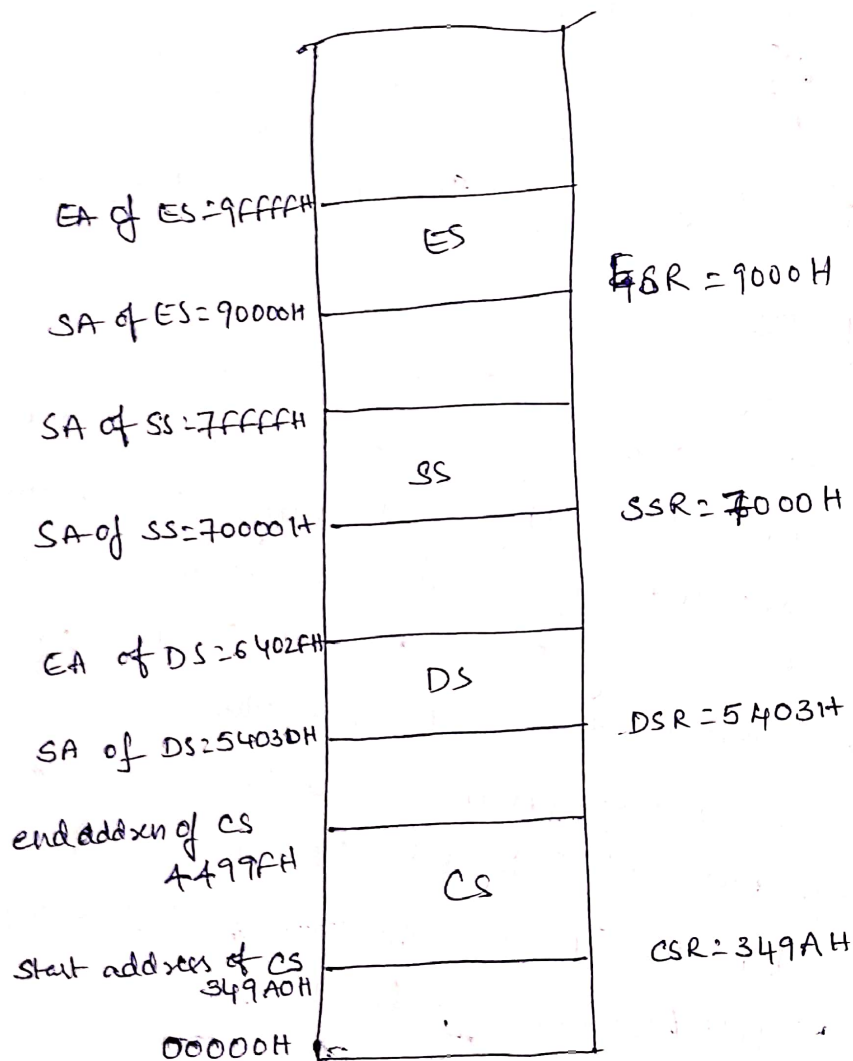 EA of ES=9ffffH
ES
ESR = 9000H
SA of ES=90000H
SA of SS=7ffffH
SS
SSR=7000H
SA of SS=70000H
EA of DS=6402fH
DS
DSR=5403H
SA of DS=54030H
end address of CS
4499fH
CS
CSR=349AH
Start address of CS
349A0H
00000H